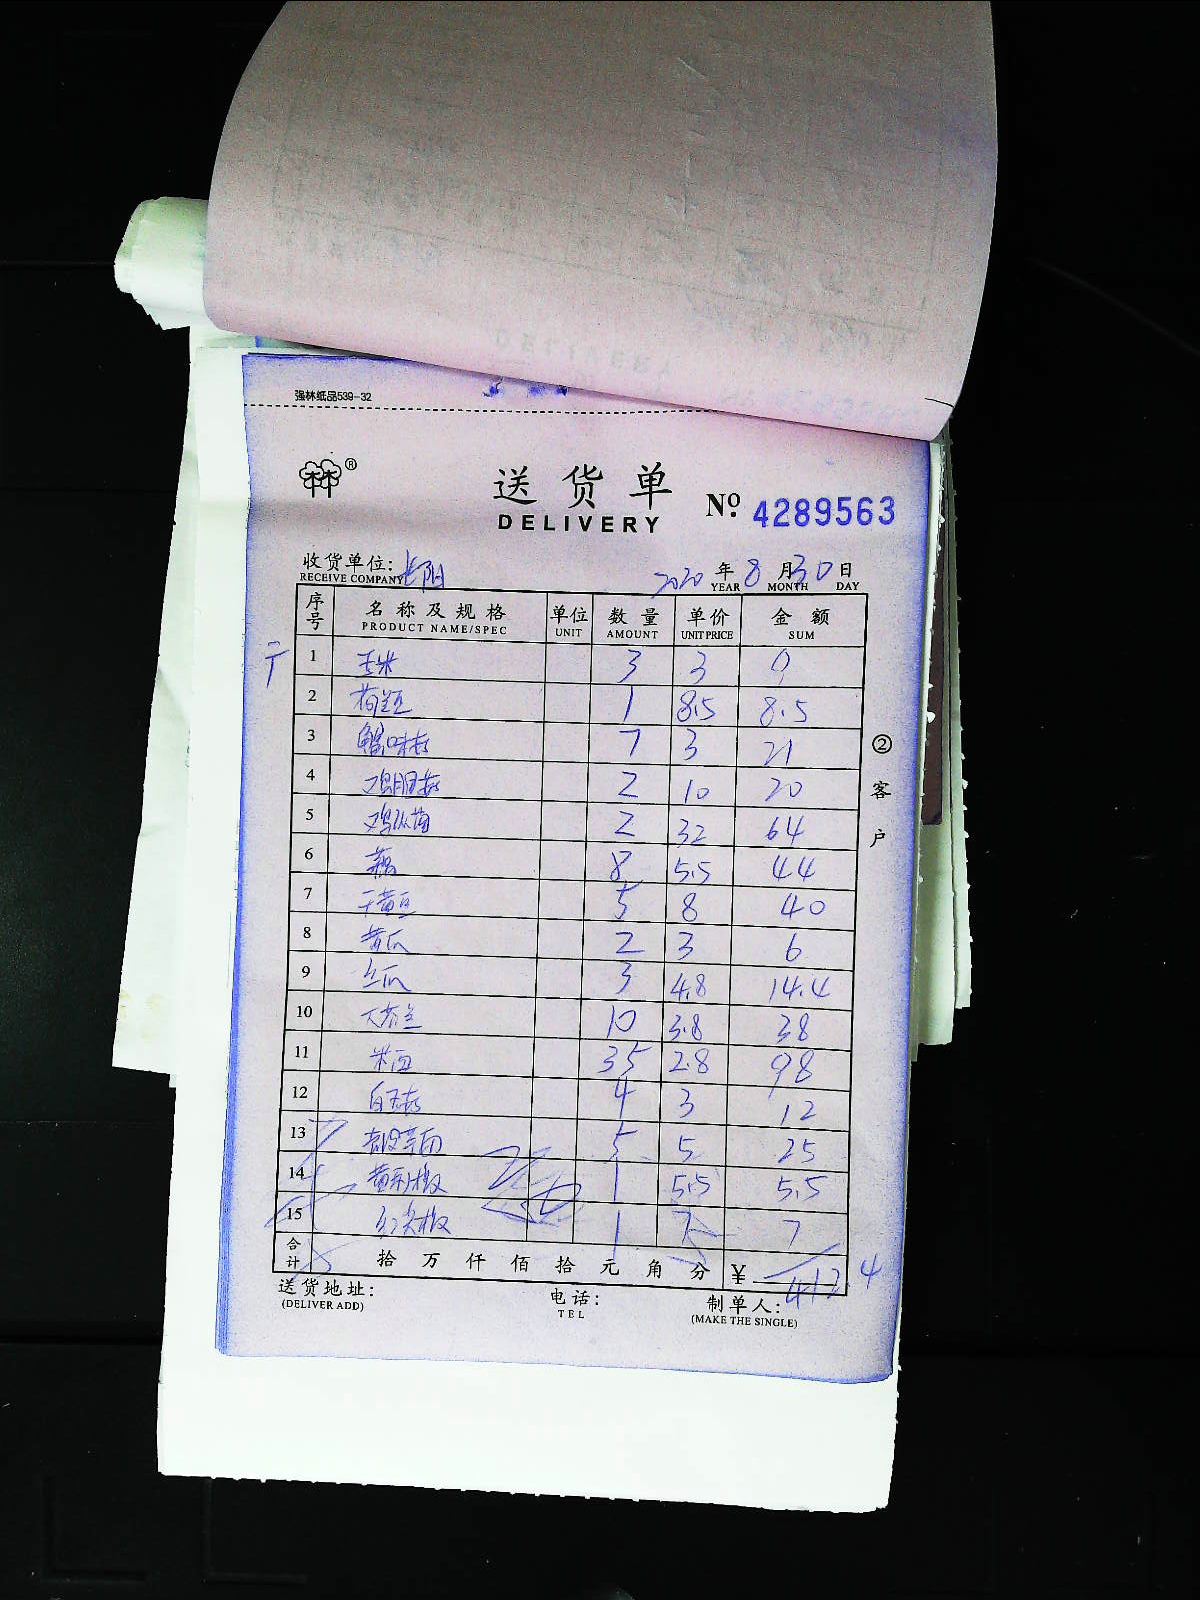 强林纸品539-32
林林®
送货单 Nº 4289563
DELIVERY
收货单位: 长阳 2020 年 8 月 30 日
RECEIVE COMPANY YEAR MONTH DAY
序号 名称及规格 单位 数量 单价 金额
PRODUCT NAME/SPEC UNIT AMOUNT UNIT PRICE SUM
1 玉米 3 3 9
2 荷兰豆 1 8.5 8.5
3 蟹味菇 7 3 21
4 鸡腿菇 2 10 20
5 鸡枞菌 2 32 64
6 藕 8 5.5 44
7 干黄豆 5 8 40
8 黄瓜 2 3 6
9 丝瓜 3 4.8 14.4
10 大芥兰 10 3.8 38
11 米面 35 2.8 98
12 白玉菇 4 3 12
13 5 5 25
14 黄彩椒 1 5.5 5.5
15 红尖椒 1 7 7
合计 拾 万 仟 佰 拾 元 角 分 ¥ 412.4
送货地址: 电话: 制单人:
(DELIVER ADD) TEL (MAKE THE SINGLE)
②客户